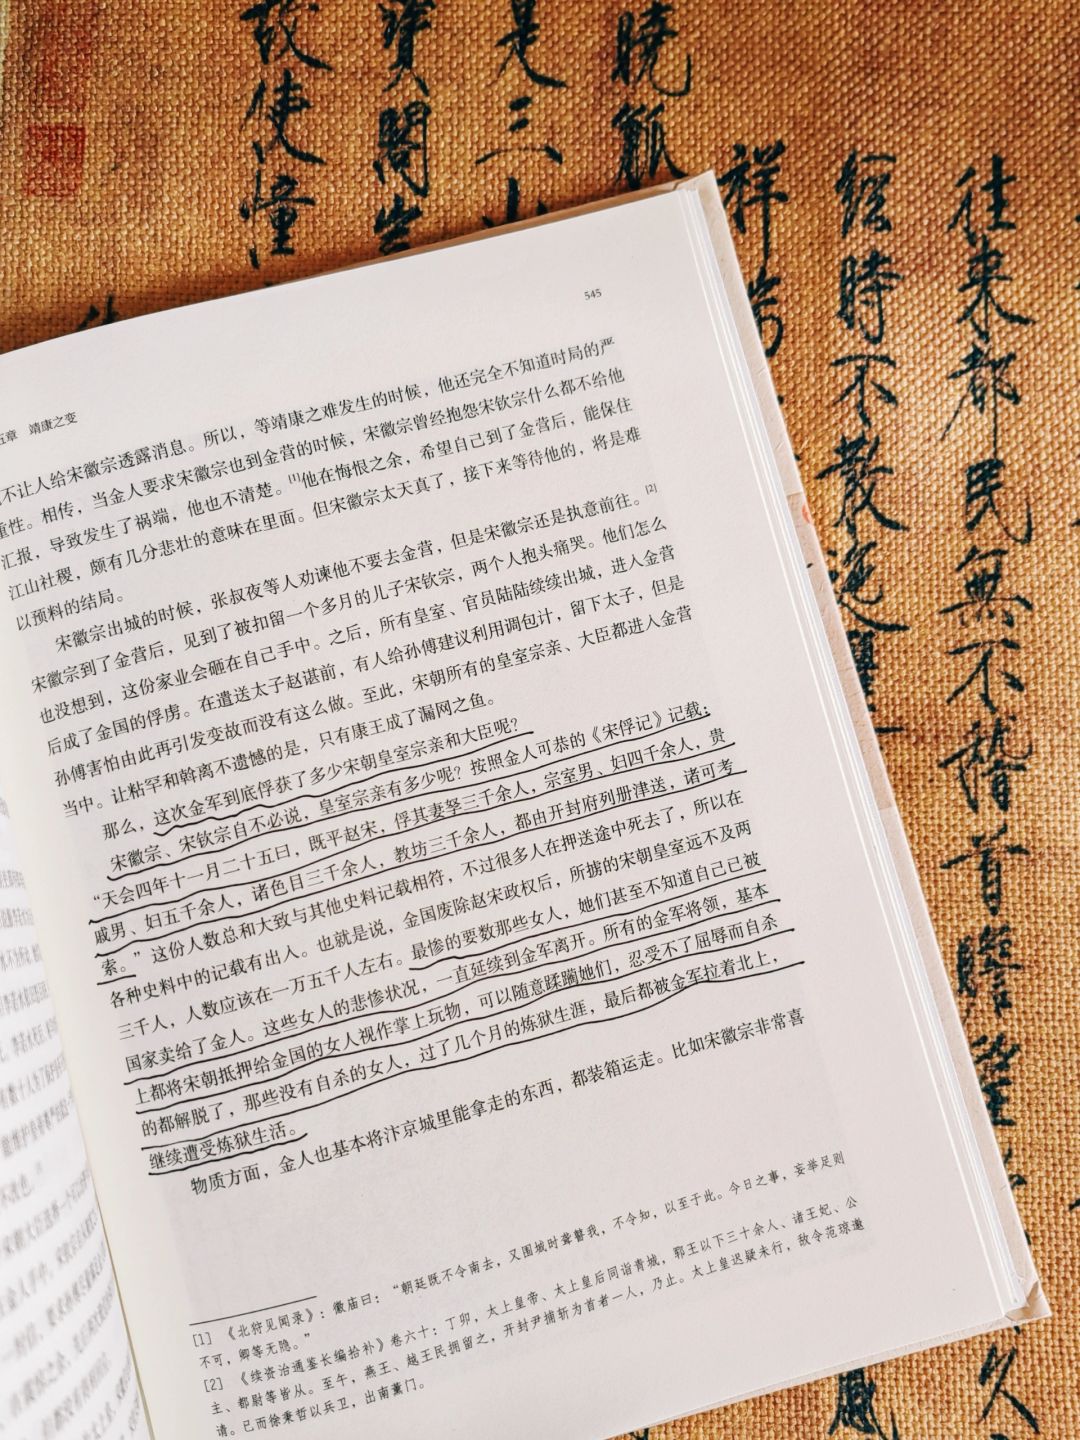 545
五章 靖康之变
不让人给宋徽宗透露消息。所以，等靖康之难发生的时候，他还完全不知道时局的严
重性。相传，当金人要求宋徽宗也到金营的时候，宋徽宗曾经抱怨宋钦宗什么都不给他
汇报，导致发生了祸端，他也不清楚。[1]他在悔恨之余，希望自己到了金营后，能保住
江山社稷，颇有几分悲壮的意味在里面。但宋徽宗太天真了，接下来等待他的，将是难
以预料的结局。
宋徽宗出城的时候，张叔夜等人劝谏他不要去金营，但是宋徽宗还是执意前往。[2]
宋徽宗到了金营后，见到了被扣留一个多月的儿子宋钦宗，两个人抱头痛哭。他们怎么
也没想到，这份家业会砸在自己手中。之后，所有皇室、官员陆陆续续出城，进入金营
后成了金国的俘虏。在遣送太子赵谌前，有人给孙傅建议利用调包计，留下太子，但是
孙傅害怕由此再引发变故而没有这么做。至此，宋朝所有的皇室宗亲、大臣都进入金营
当中。让粘罕和斡离不遗憾的是，只有康王成了漏网之鱼。
那么，这次金军到底俘获了多少宋朝皇室宗亲和大臣呢？
宋徽宗、宋钦宗自不必说，皇室宗亲有多少呢？按照金人可恭的《宋俘记》记载：
“天会四年十一月二十五日，既平赵宋，俘其妻孥三千余人，宗室男、妇四千余人，贵
戚男、妇五千余人，诸色目三千余人，教坊三千余人，都由开封府列册津送，诸可考
索。”这份人数总和大致与其他史料记载相符，不过很多人在押送途中死去了，所以在
各种史料中的记载有出入。也就是说，金国废除赵宋政权后，所掳的宋朝皇室远不及两
三千人，人数应该在一万五千人左右。最惨的要数那些女人，她们甚至不知道自己已被
国家卖给了金人。这些女人的悲惨状况，一直延续到金军离开。所有的金军将领，基本
上都将宋朝抵押给金国的女人视作掌上玩物，可以随意蹂躏她们，忍受不了屈辱而自杀
的都解脱了，那些没有自杀的女人，过了几个月的炼狱生涯，最后都被金军拉着北上，
继续遭受炼狱生活。
物质方面，金人也基本将汴京城里能拿走的东西，都装箱运走。比如宋徽宗非常喜
[1] 《北狩见闻录》：徽庙曰：“朝廷既不令南去，又围城时聋瞽我，不令知，以至于此。今日之事，妄举足则
不可，卿等无隐。”
[2] 《续资治通鉴长编拾补》卷六十：丁卯，太上皇帝、太上皇后同诣青城，郓王以下三十余人、诸王妃、公
主、都尉等皆从。至午，燕王、越王民拥留之，开封尹捕斩为首者一人，乃止。太上皇迟疑未行，敌令范琼邀
请。已而徐秉哲以兵卫，出南薰门。
往来都民無不稽首瞻望
經時不散迤
祥
曉觚
是三
寶閣
故使憧